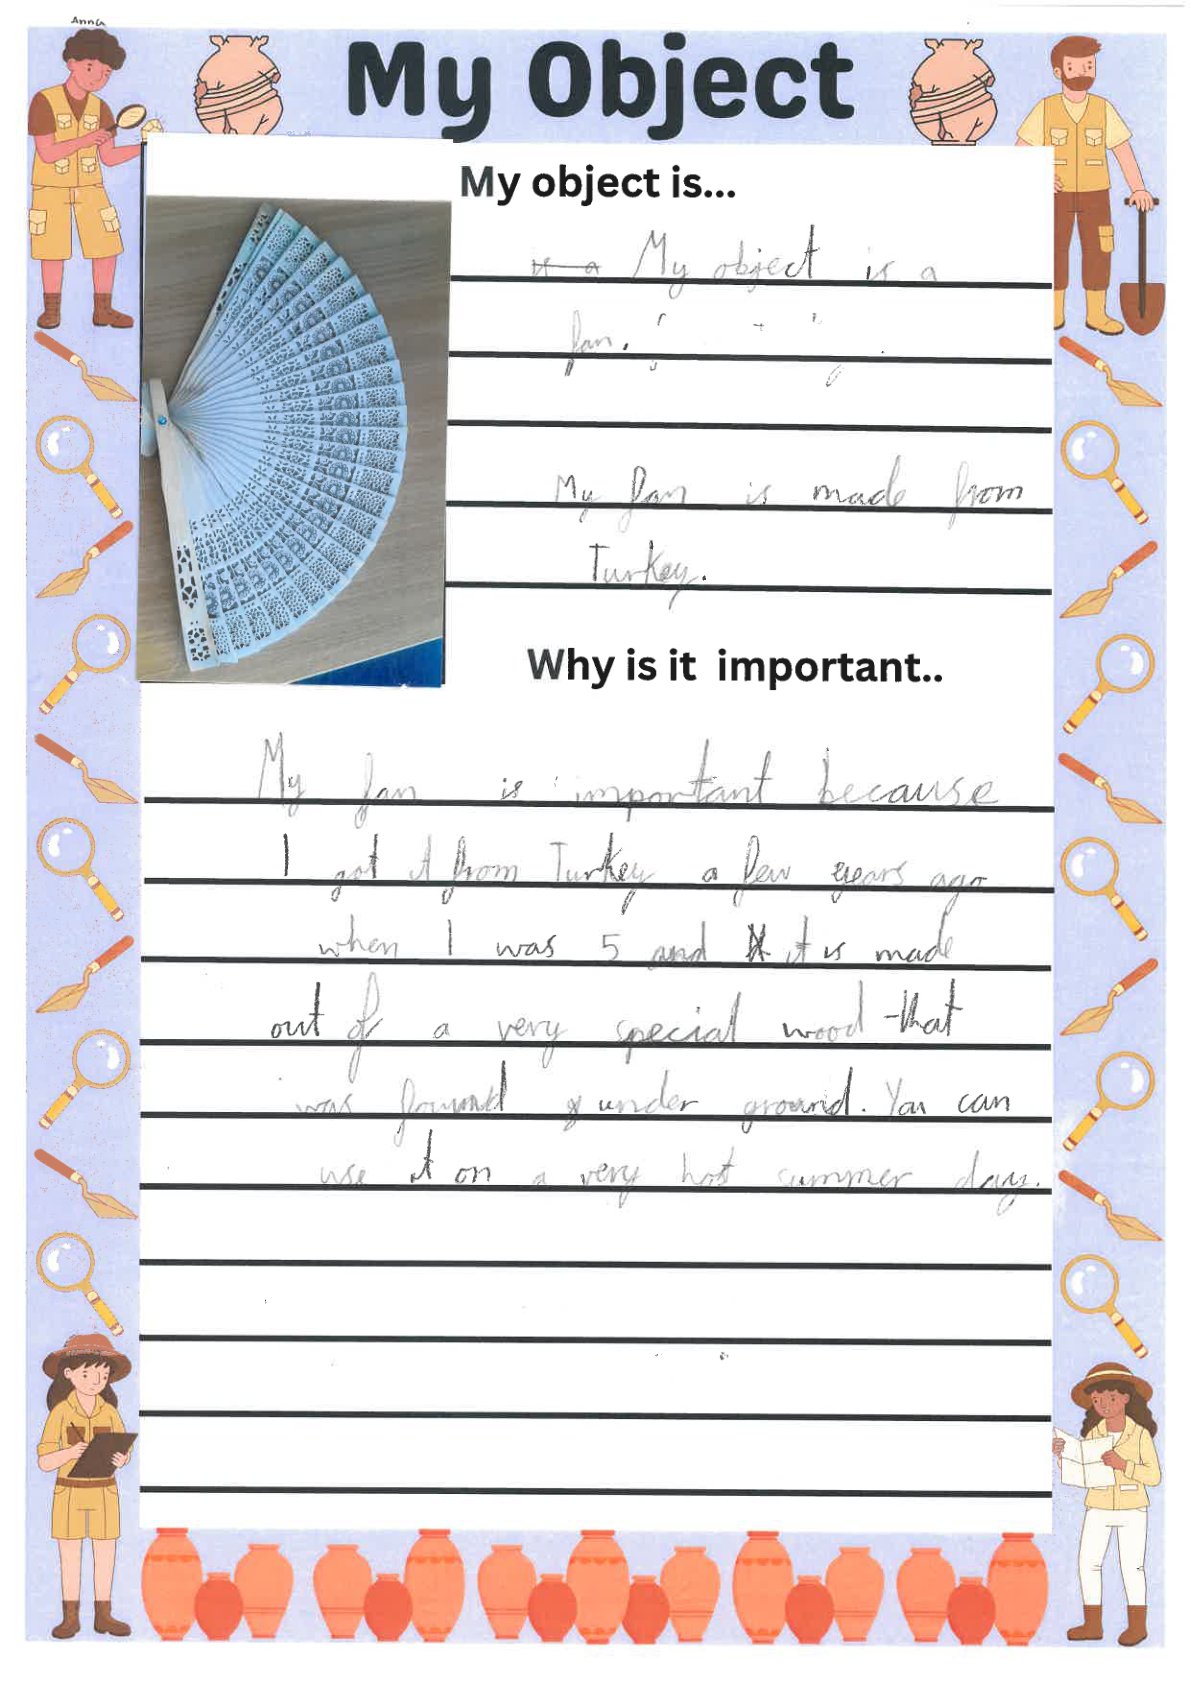 Anna
My Object
My object is...
is a My object is a
fan.
My fan is made from
Turkey.
Why is it important..
My fan is important because
I got it from Turkey a few years ago
when I was 5 and it is made
out of a very special wood that
was found under ground. You can
use it on a very hot summer day.